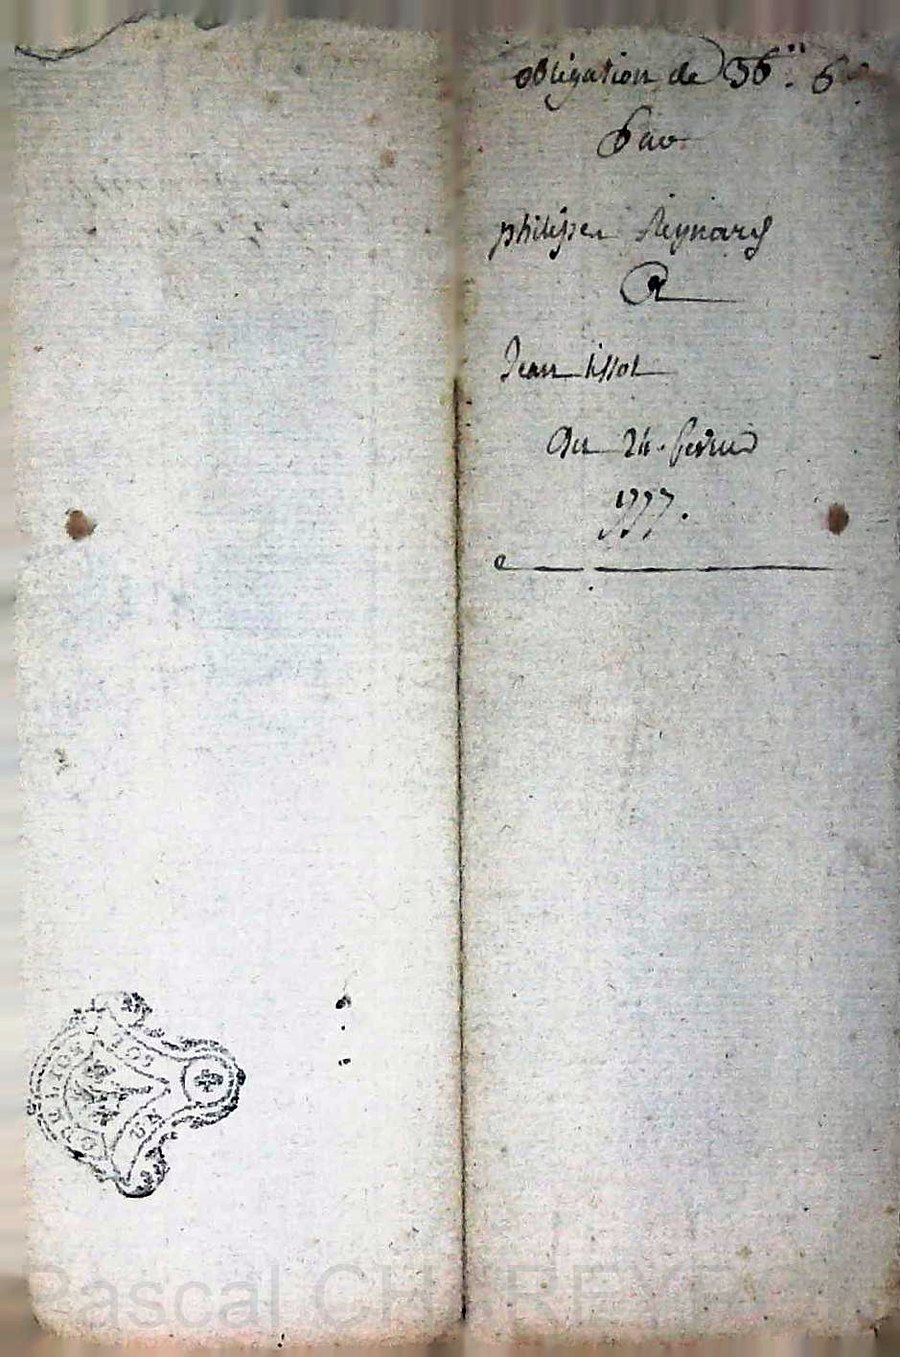 obligation de 36ᴴ. 6ˢ.
Par
philippe Reynard
A
Jean tissot
Du 24. fevrier
1777.
Pascal CH REYRO